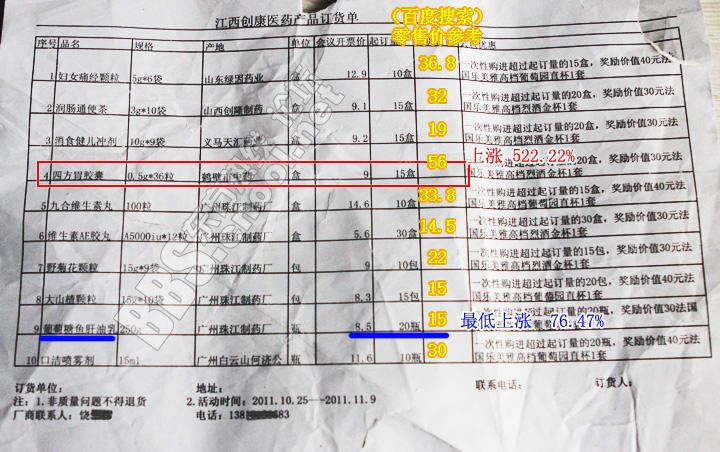 江西创康医药产品订货单
(百度搜索)
零售价参考
序号 品名 规格 产地 单位 会议开票价 起订量 优惠
1 妇女痛经颗粒 5g*6袋 山东绿因药业 盒 12.9 10盒 36.8 一次性购进超过起订量的15盒，奖励价值40元法国乐美雅高档葡萄园直杯1套
2 润肠通便茶 3g*10袋 山西创隆制药 盒 9.1 15盒 32 一次性购进超过起订量的20盒，奖励价值30元法国乐美雅高档烈酒金杯1套
3 消食健儿冲剂 10g*9袋 义马天汇药业 盒 9.2 15盒 19 一次性购进超过起订量的20盒，奖励价值30元法国乐美雅高档烈酒金杯1套
上涨 522.22%
4 四方胃胶囊 0.5g*36粒 鹤壁市中药 盒 9 15盒 56 20盒，奖励价值30元法国乐美雅高档烈酒金杯1套
5 九合维生素丸 100粒 广州珠江制药厂 盒 14.6 10盒 33.8 一次性购进超过起订量的15盒，奖励价值40元法国乐美雅高档葡萄园直杯1套
6 维生素AE胶丸 A5000iu*12粒 广州珠江制药厂 盒 5.6 30盒 14.5 一次性购进超过起订量的30盒，奖励价值30元法国乐美雅高档烈酒金杯1套
7 野菊花颗粒 15g*9袋 广州珠江制药厂 包 9 10包 22 一次性购进超过起订量的15包，奖励价值30元法国乐美雅高档烈酒金杯1套
8 大山楂颗粒 15g*10袋 广州珠江制药厂 包 8.3 15包 15 一次性购进超过起订量的20包，奖励价值40元法国乐美雅高档葡萄园直杯1套
9 葡萄糖鱼肝油乳 250g 广州珠江制药厂 瓶 8.5 20瓶 15 奖励价值30元法国
最低上涨 76.47%
10 口洁喷雾剂 15ml 广州白云山何济公 瓶 11.6 10瓶 30 一次性购进超过起订量的20瓶，奖励价值40元法国乐美雅高档葡萄园直杯1套
订货单位： 地址： 联系电话： 订货人：
注：1.非质量问题不得退货 2.活动时间：2011.10.25---2011.11.9
厂商联系人：饶 电话：138 683